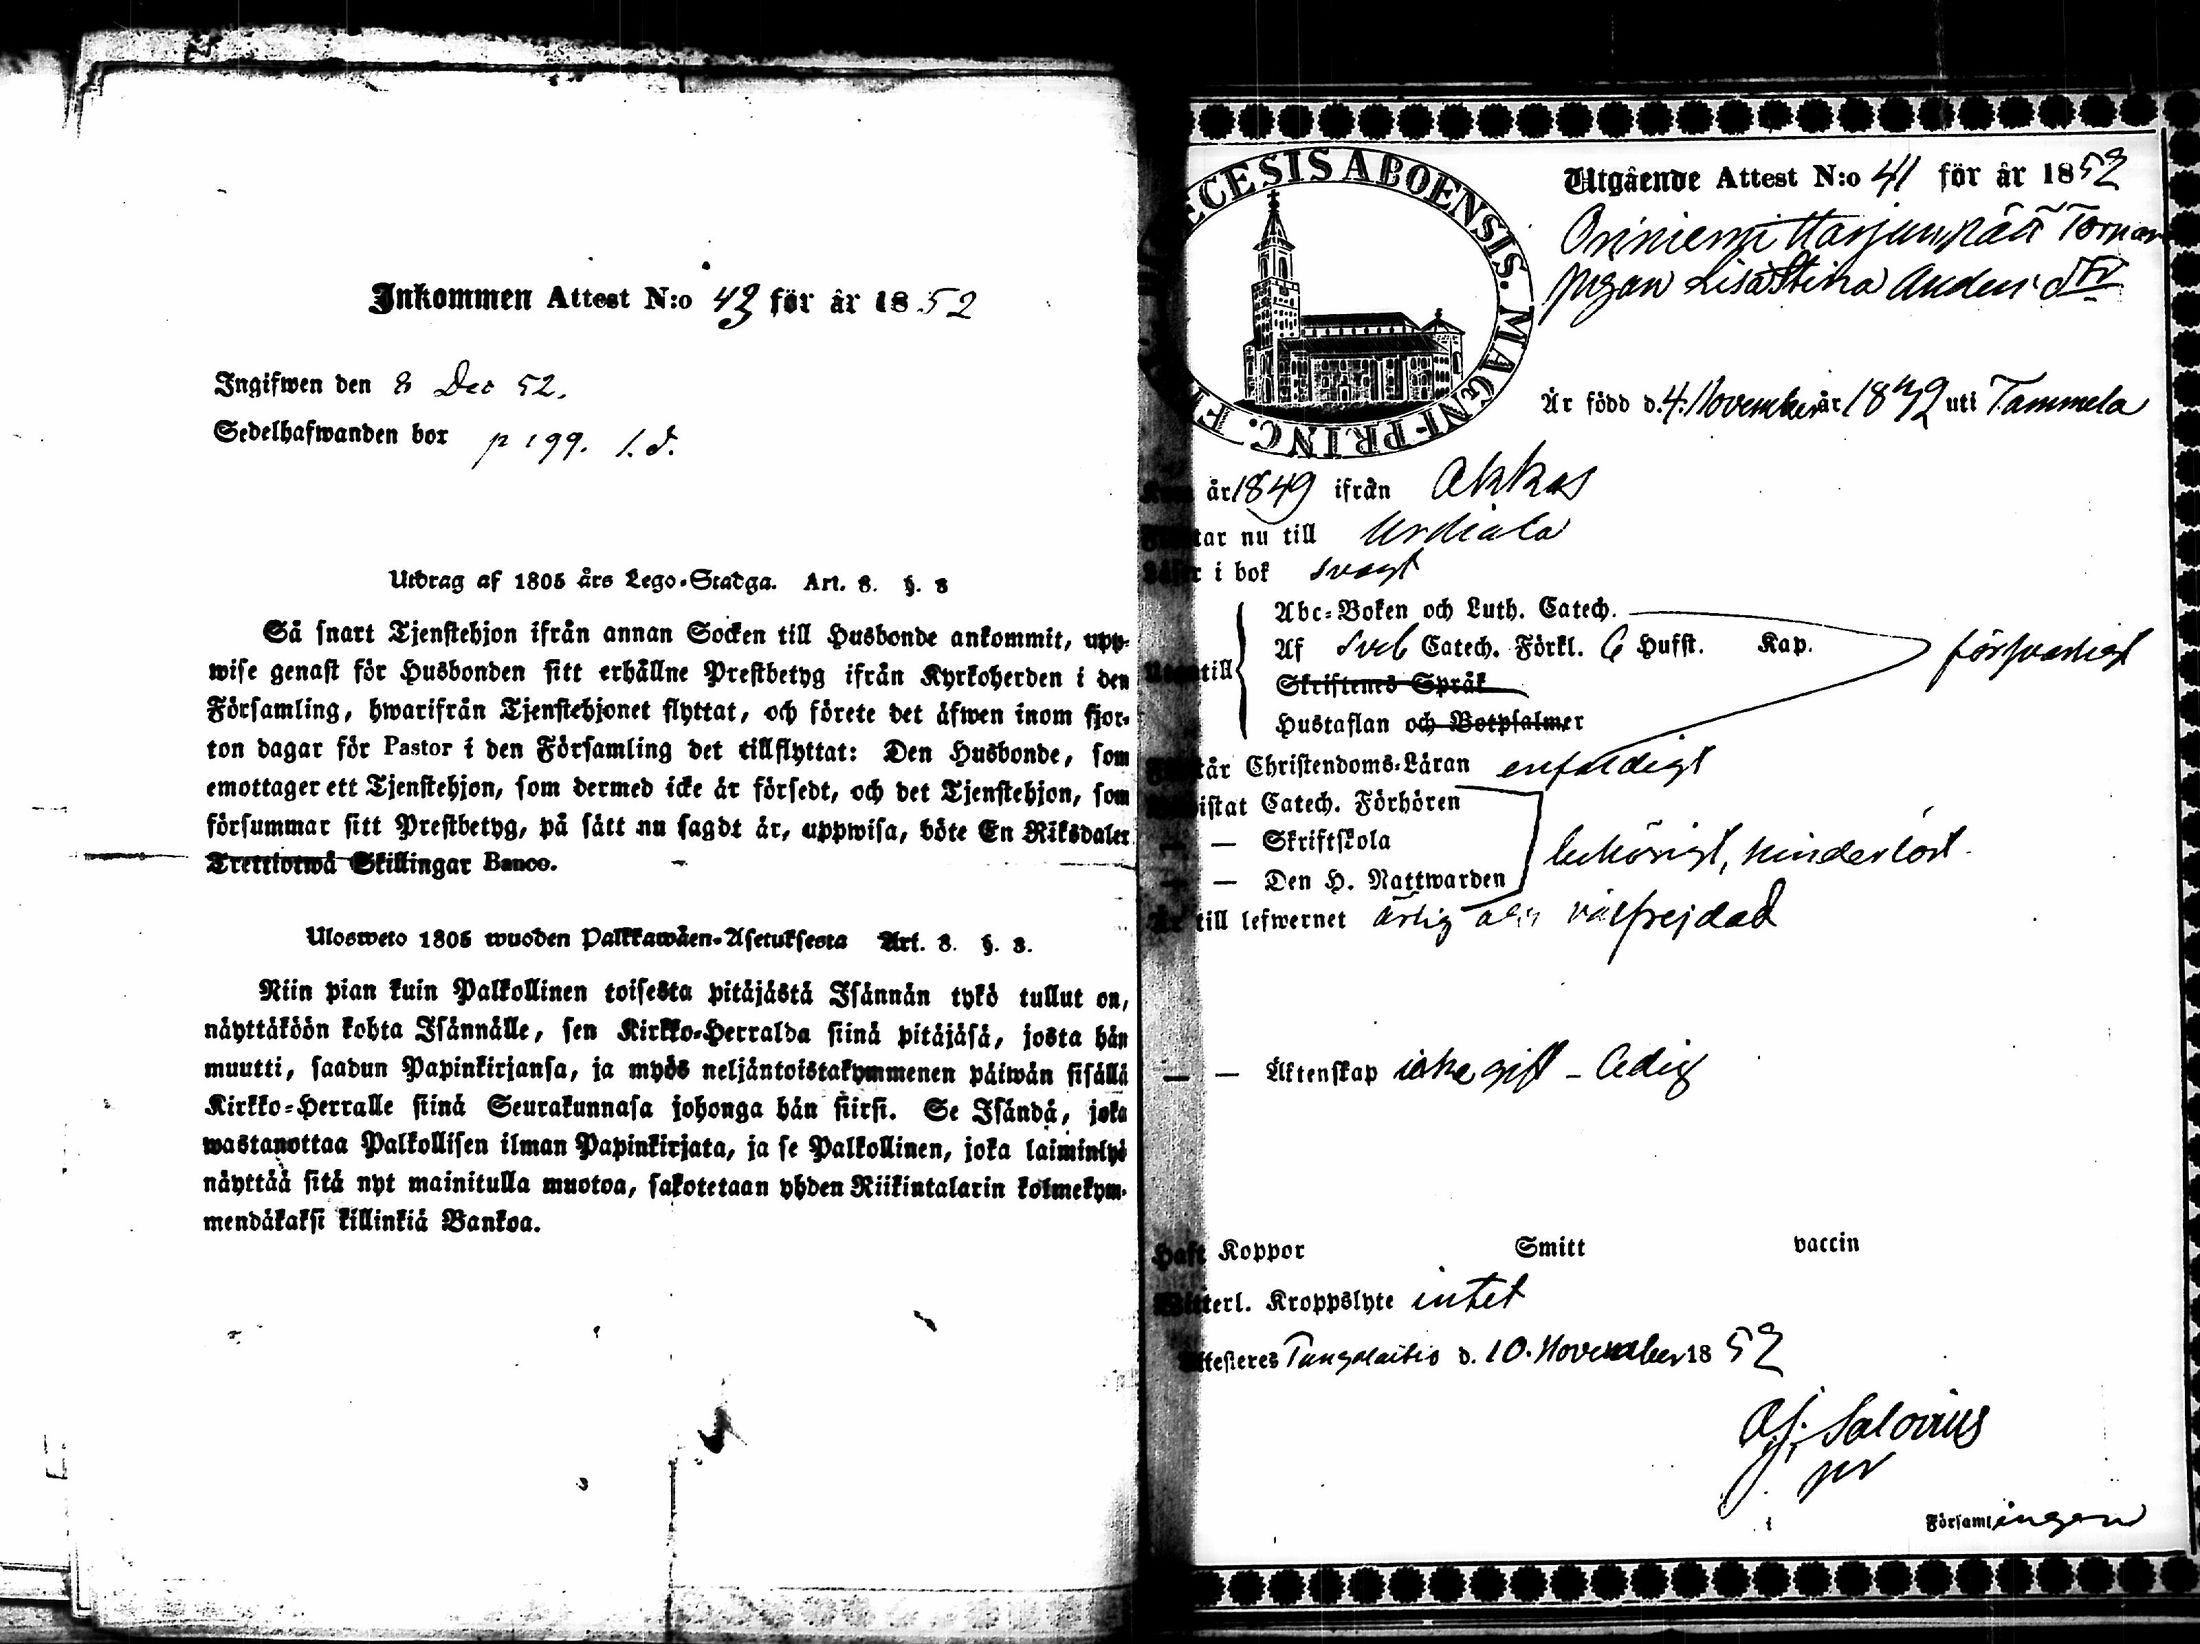 Inkommen Attest N:o 43 för år 1852
Ingifwen den 8 Dec 52.
Sedelhafwanden bor p 199. l. d.
Utdrag af 1805 års Lego-Stadga. Art. 8. §. 8
Så snart Tjenstehjon ifrån annan Socken till Husbonde ankommit, upp-
wise genast för Husbonden sitt erhållne Prestbetyg ifrån Kyrkoherden i den
Församling, hwarifrån Tjenstehjonet flyttat, och förete det äfwen inom fjor-
ton dagar för Pastor i den Församling det tillflyttat: Den Husbonde, som
emottager ett Tjenstehjon, som dermed icke är försedt, och det Tjenstehjon, som
försummar sitt Prestbetyg, på sätt nu sagdt är, uppwisa, böte En Riksdaler
Trettiotwå Skillingar Banco.
Ulosweto 1805 wuoden Palkkawäen-Asetuksesta Art. 8. §. 8.
Niin pian kuin Palkollinen toisesta pitäjästä Isännän tykö tullut on,
näyttäköön kohta Isännälle, sen Kirkko-Herralda siinä pitäjäsä, josta hän
muutti, saadun Papinkirjansa, ja myös neljäntoistakymmenen päiwän sisällä
Kirkko-Herralle siinä Seurakunnasa johonga hän siirsi. Se Isändä, joka
wastanottaa Palkollisen ilman Papinkirjata, ja se Palkollinen, joka laiminlyö
näyttää sitä nyt mainitulla muotoa, sakotetaan yhden Riikintalarin kolmekym-
mendäkaksi killinkiä Bankoa.
ECESIS ABOENSIS. MAGNI-PRINC. F
Utgående Attest N:o 41 för år 1852
Oriniemi Harjunpää Torpar
pigan Lisa Stina Anders dr
Är född d. 4. November år 1832 uti Tammela
Kom år 1849 ifrån Akkas
Flyttar nu till Urdiala
Läser i bok svagt
Utantill
Abc-Boken och Luth. Catech.
Af Sveb Catech. Förkl. 6 Hufst. Kap.
Skriftenes Språk
Hustaflan och Botpsalmer
försvarligt
Förstår Christendoms-Läran enfaldigt
Bewistat Catech. Förhören
— — Skriftskola
— — Den H. Nattwarden
behörigt, hinderlöst.
Är till lefwernet ärlig och välfrejdad
— — Äktenskap icke gift - ledig
Haft Koppor Smitt vaccin
Witterl. Kroppslyte intet
Attesteres Tungelaitio d. 10. November 1852
Salovius
i Församlingen